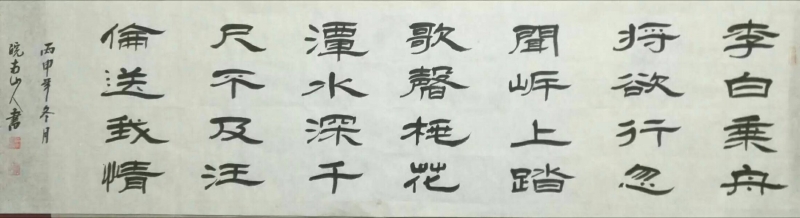 李白乘舟
将欲行忽
聞岸上踏
歌聲桃花
潭水深千
尺不及汪
倫送我情
丙申年冬月
皖南山人書